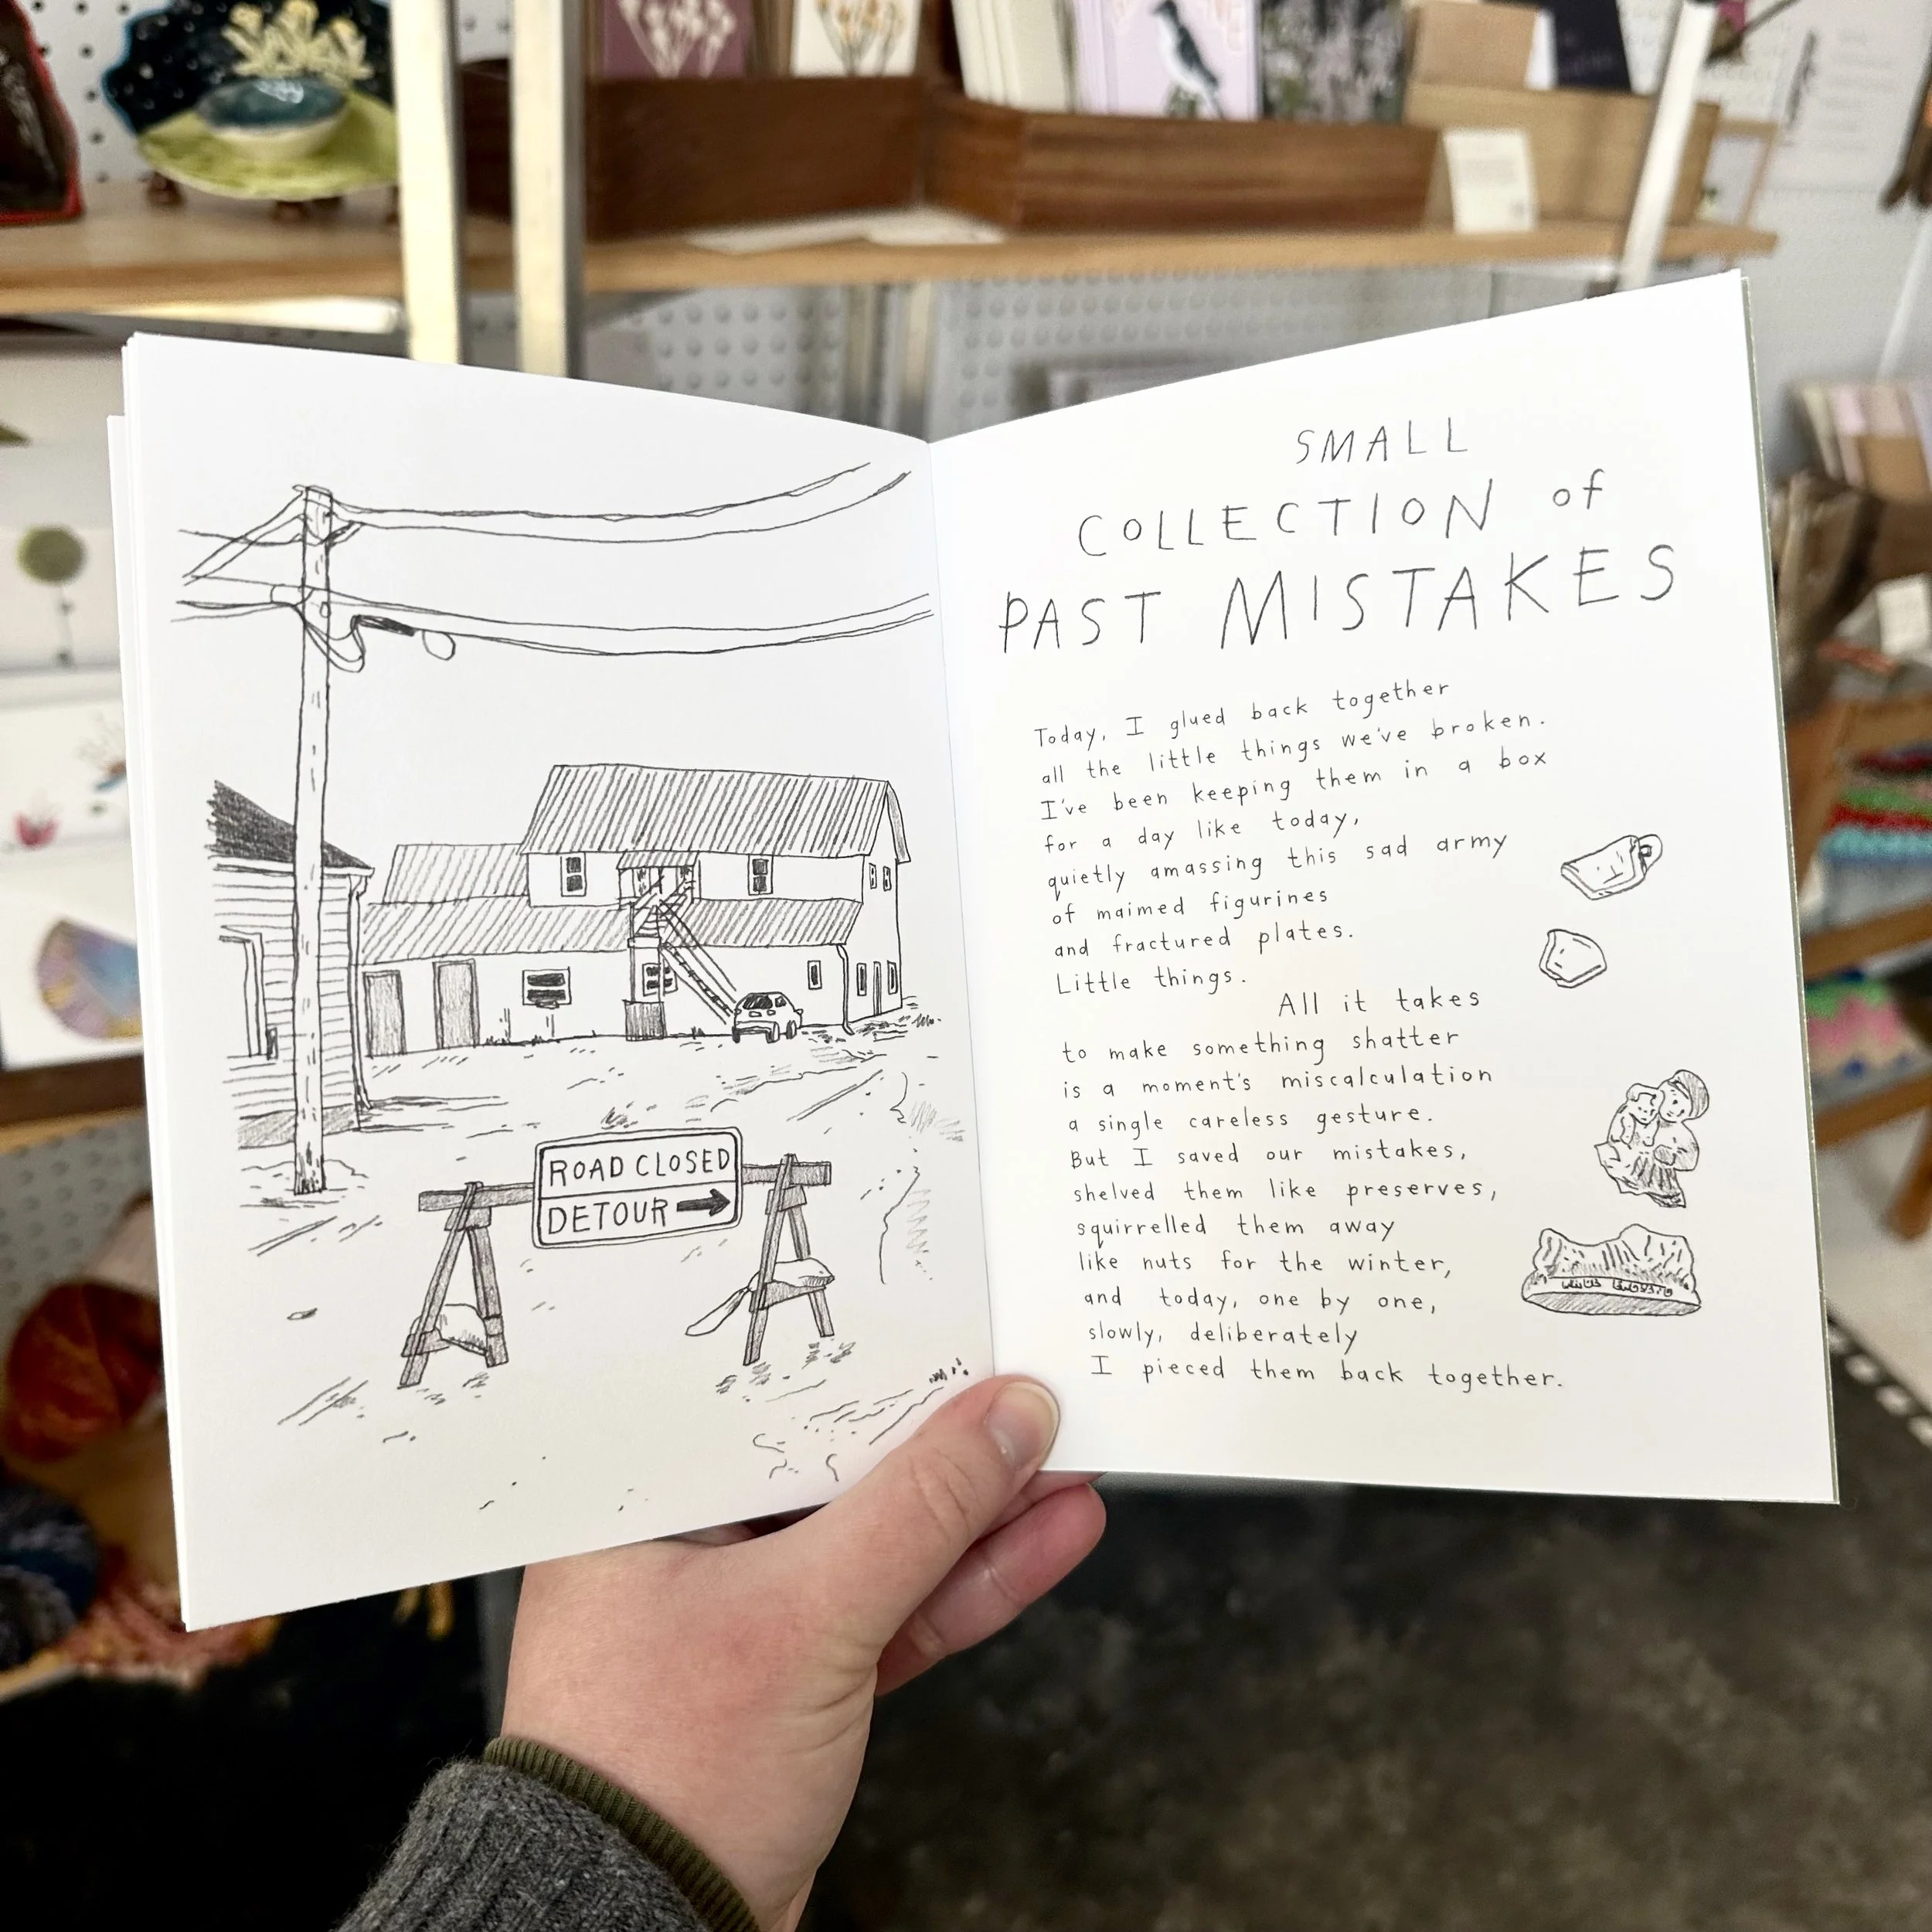 ROAD CLOSED
DETOUR
SMALL
COLLECTION of
PAST MISTAKES
Today, I glued back together
all the little things we've broken.
I've been keeping them in a box
for a day like today,
quietly amassing this sad army
of maimed figurines
and fractured plates.
Little things.
All it takes
to make something shatter
is a moment's miscalculation
a single careless gesture.
But I saved our mistakes,
shelved them like preserves,
squirrelled them away
like nuts for the winter,
and today, one by one,
slowly, deliberately
I pieced them back together.